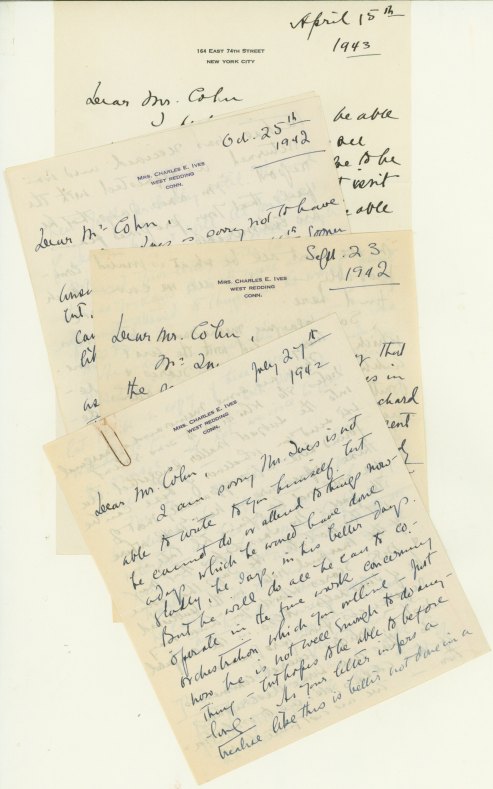 April 15th
1943
164 EAST 74TH STREET
NEW YORK CITY
Dear Mr. Cohn
be able
to be
visit
able
Oct. 25th
1942
MRS. CHARLES E. IVES
WEST REDDING
CONN.
Dear Mr Cohn,
Ives is sorry not to have
sooner
Sept. 23
1942
MRS. CHARLES E. IVES
WEST REDDING
CONN.
Dear Mr. Cohn,
Mr.
as the
that
in
July 27th
1942
MRS. CHARLES E. IVES
WEST REDDING
CONN.
Dear Mr Cohn,
I am sorry Mr. Ives is not
able to write to you himself but
he cannot do or attend to things now-
adays which he would have done
gladly, he says, in his better days.
But he will do all he can to co-
operate in the fine work concerning
orchestration which you outline - Just
now he is not well enough to do any-
thing - but hopes to be able to before
long. As your letter infers a
treatise like this is better not done in a